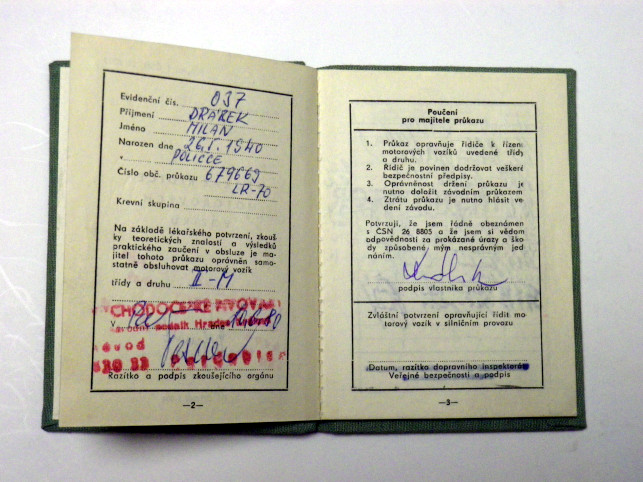 Evidenční čís. 037
Příjmení DRÁBEK
Jméno MILAN
Narozen dne 26.I.1940
v POLICCE
Číslo obč. průkazu 679669
LR-70
Krevní skupina
Na základě lékařského potvrzení, zkouš-
ky teoretických znalostí a výsledků
praktického zaučení v obsluze je ma-
jitel tohoto průkazu oprávněn samo-
statně obsluhovat motorový vozík
třídy a druhu II-M
VÝCHODOČESKÉ PIVOVARY
národní podnik Hradec Králové
V
závod
530 33 PARDUBICE
Razítko a podpis zkoušejícího orgánu
—2—
Poučení
pro majitele průkazu
1. Průkaz opravňuje řidiče k řízení
motorových vozíků uvedené třídy
a druhu.
2. Řidič je povinen dodržovat veškeré
bezpečnostní předpisy.
3. Oprávněnost držení průkazu je
nutno doložit závodním průkazem
4. Ztrátu průkazu je nutno hlásit ve-
dení závodu.
Potvrzuji, že jsem řádně obeznámen
s ČSN 26 8805 a že jsem si vědom
odpovědnosti za prokázané úrazy a ško-
dy způsobené mým nesprávným jed-
náním.
podpis vlastníka průkazu
Zvláštní potvrzení opravňující řídit mo-
torový vozík v silničním provozu
Datum, razítko dopravního inspektorátu
Veřejné bezpečnosti a podpis
—3—